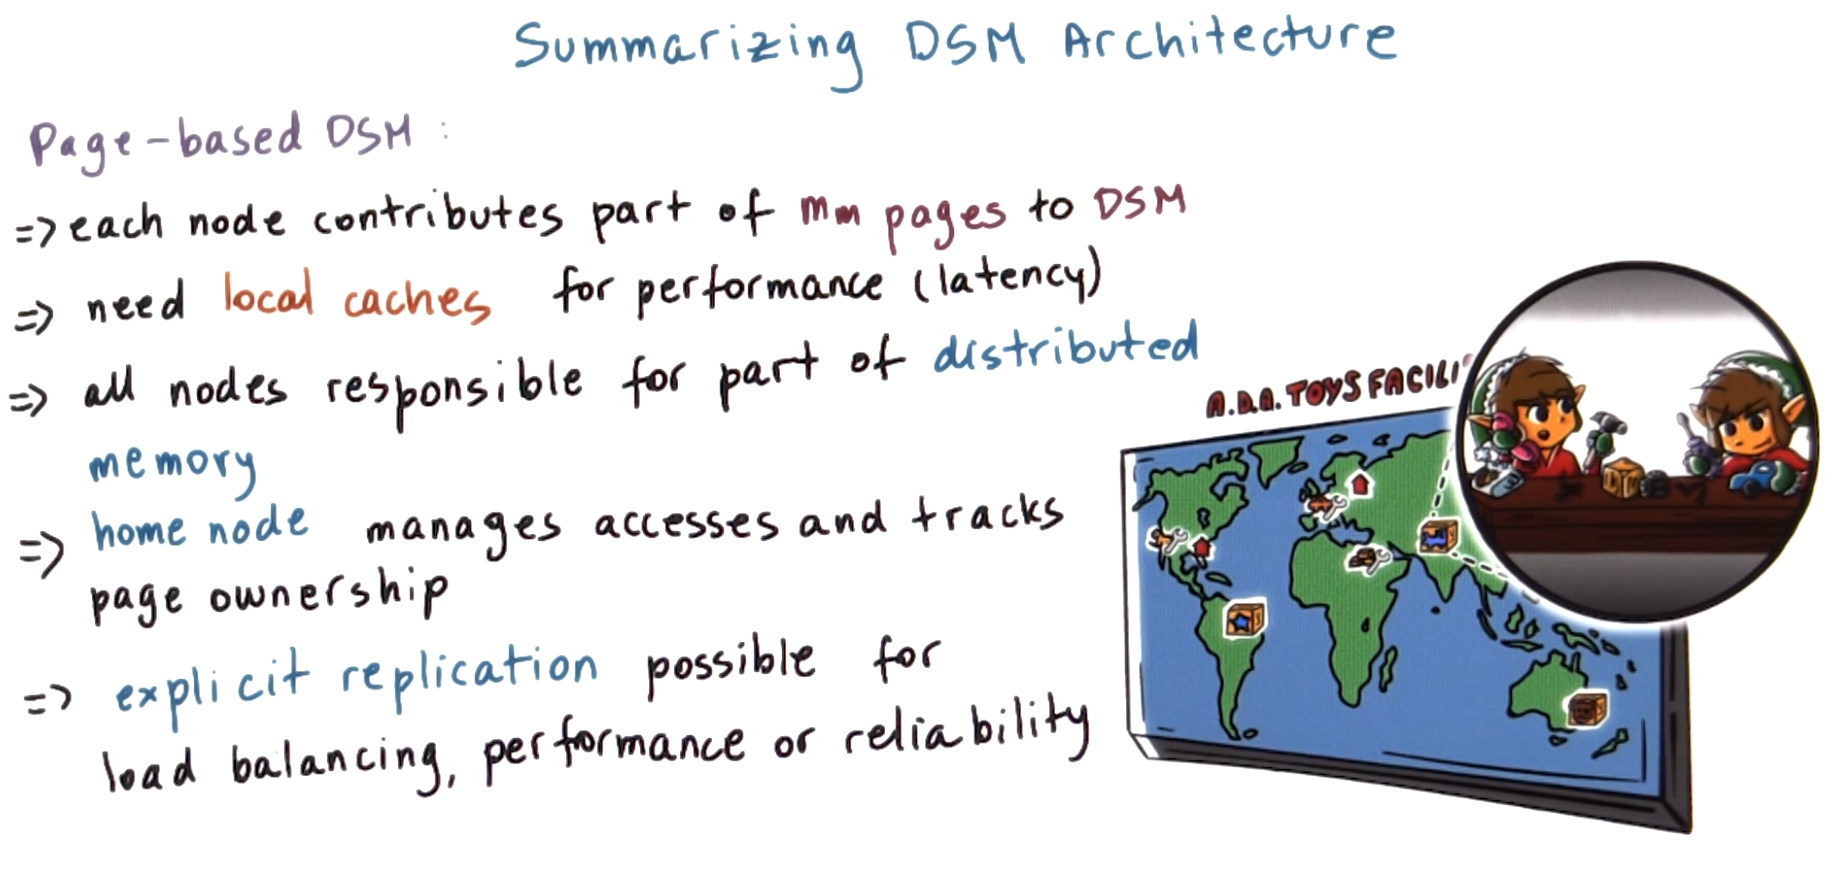 Summarizing DSM Architecture
Page-based DSM :
=> each node contributes part of mm pages to DSM
=> need local caches for performance (latency)
=> all nodes responsible for part of distributed
memory
=> home node manages accesses and tracks
page ownership
=> explicit replication possible for
load balancing, performance or reliability
A.D.A. TOYS FACILI